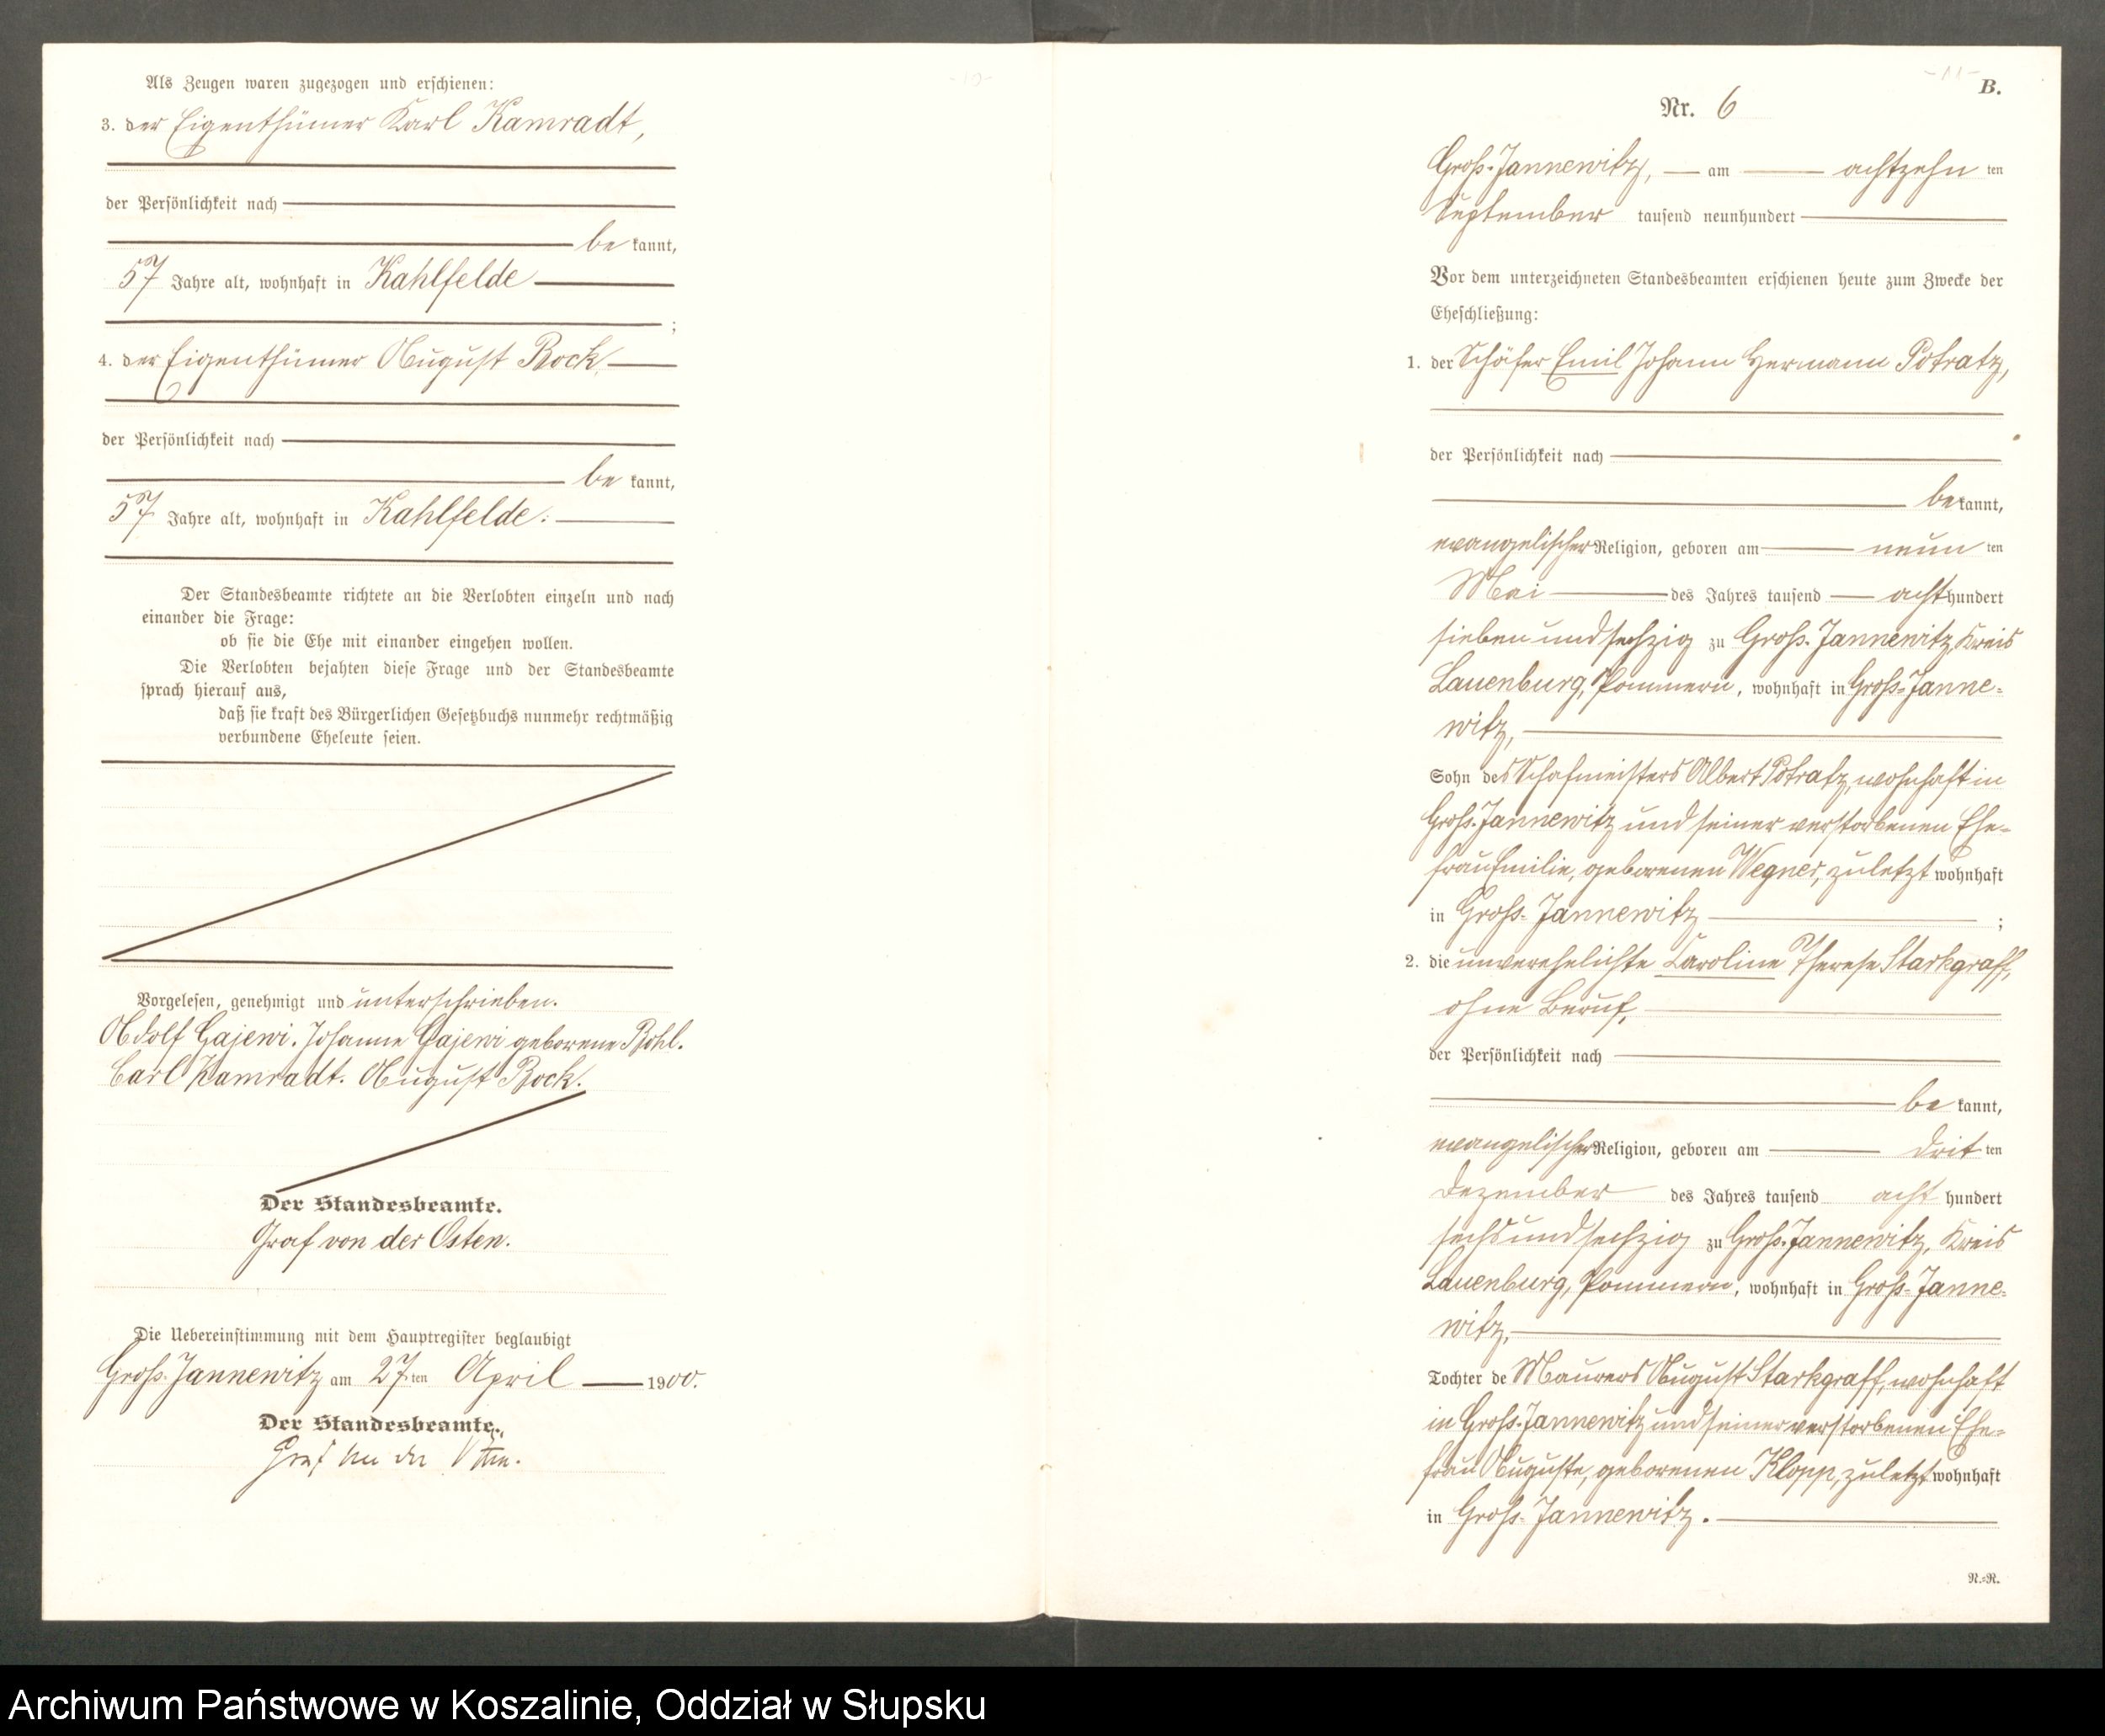 Als Zeugen waren zugezogen und erschienen:
3. der Eigenthümer Karl Kamradt,
der Persönlichkeit nach
be kannt,
57 Jahre alt, wohnhaft in Kahlfelde
;
4. der Eigenthümer August Bock,
der Persönlichkeit nach
be kannt,
57 Jahre alt, wohnhaft in Kahlfelde.
Der Standesbeamte richtete an die Verlobten einzeln und nach
einander die Frage:
ob sie die Ehe mit einander eingehen wollen.
Die Verlobten bejahten diese Frage und der Standesbeamte
sprach hierauf aus,
daß sie kraft des Bürgerlichen Gesetzbuchs nunmehr rechtmäßig
verbundene Eheleute seien.
Vorgelesen, genehmigt und unterschrieben.
Adolf Gajewi. Johanne Gajewi geborene Pohl.
Carl Kamradt. August Bock.
Der Standesbeamte.
Graf von der Osten.
Die Uebereinstimmung mit dem Hauptregister beglaubigt
Groß-Jannewitz am 27.ten April 1900.
Der Standesbeamte.
Graf von der Osten.
-10-
-11-
B.
Nr. 6
Groß-Jannewitz, am achtzehn ten
September tausend neunhundert
Vor dem unterzeichneten Standesbeamten erschienen heute zum Zwecke der
Eheschließung:
1. der Schäfer Emil Johann Hermann Potratz,
der Persönlichkeit nach
be kannt,
evangelischer Religion, geboren am neun ten
Mai des Jahres tausend acht hundert
sieben und sechzig zu Groß-Jannewitz, Kreis
Lauenburg, Pommern, wohnhaft in Groß-Janne-
witz,
Sohn des Schafmeisters Albert Potratz, wohnhaft in
Groß-Jannewitz und seiner verstorbenen Ehe-
frau Emilie, geborenen Wegner, zuletzt wohnhaft
in Groß-Jannewitz ;
2. die unverehelichte Caroline Therese Starkgraff,
ohne Beruf,
der Persönlichkeit nach
be kannt,
evangelischer Religion, geboren am drit ten
Dezember des Jahres tausend acht hundert
sechs und sechzig zu Groß-Jannewitz, Kreis
Lauenburg, Pommern, wohnhaft in Groß-Janne-
witz,
Tochter de Maurers August Starkgraff, wohnhaft
in Groß-Jannewitz und seiner verstorbenen Ehe-
frau Auguste, geborenen Klopp, zuletzt wohnhaft
in Groß-Jannewitz.
N.=R.
Archiwum Państwowe w Koszalinie, Oddział w Słupsku